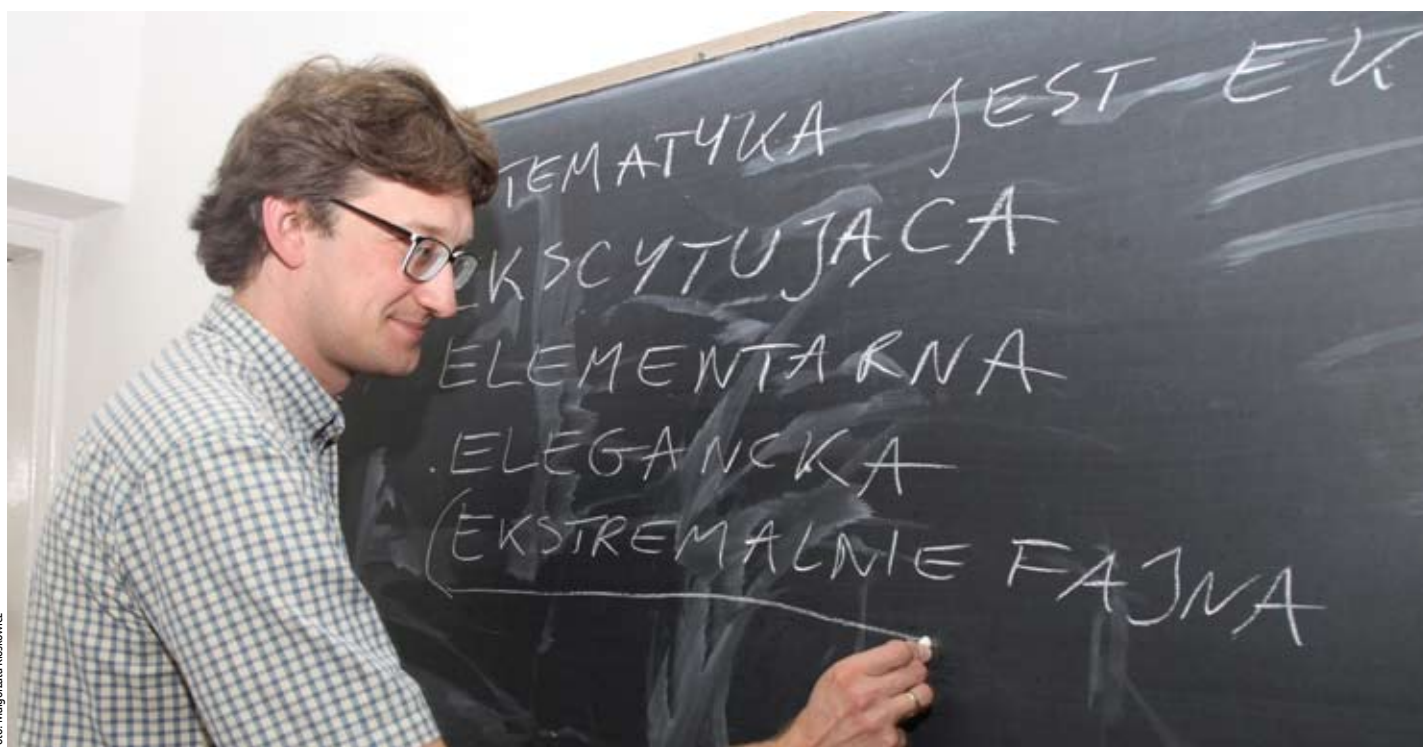 TEMATYKA JEST EK
KSCYTUJĄCA
ELEMENTARNA
.ELEGANCKA
(EKSTREMALNIE FAJNA